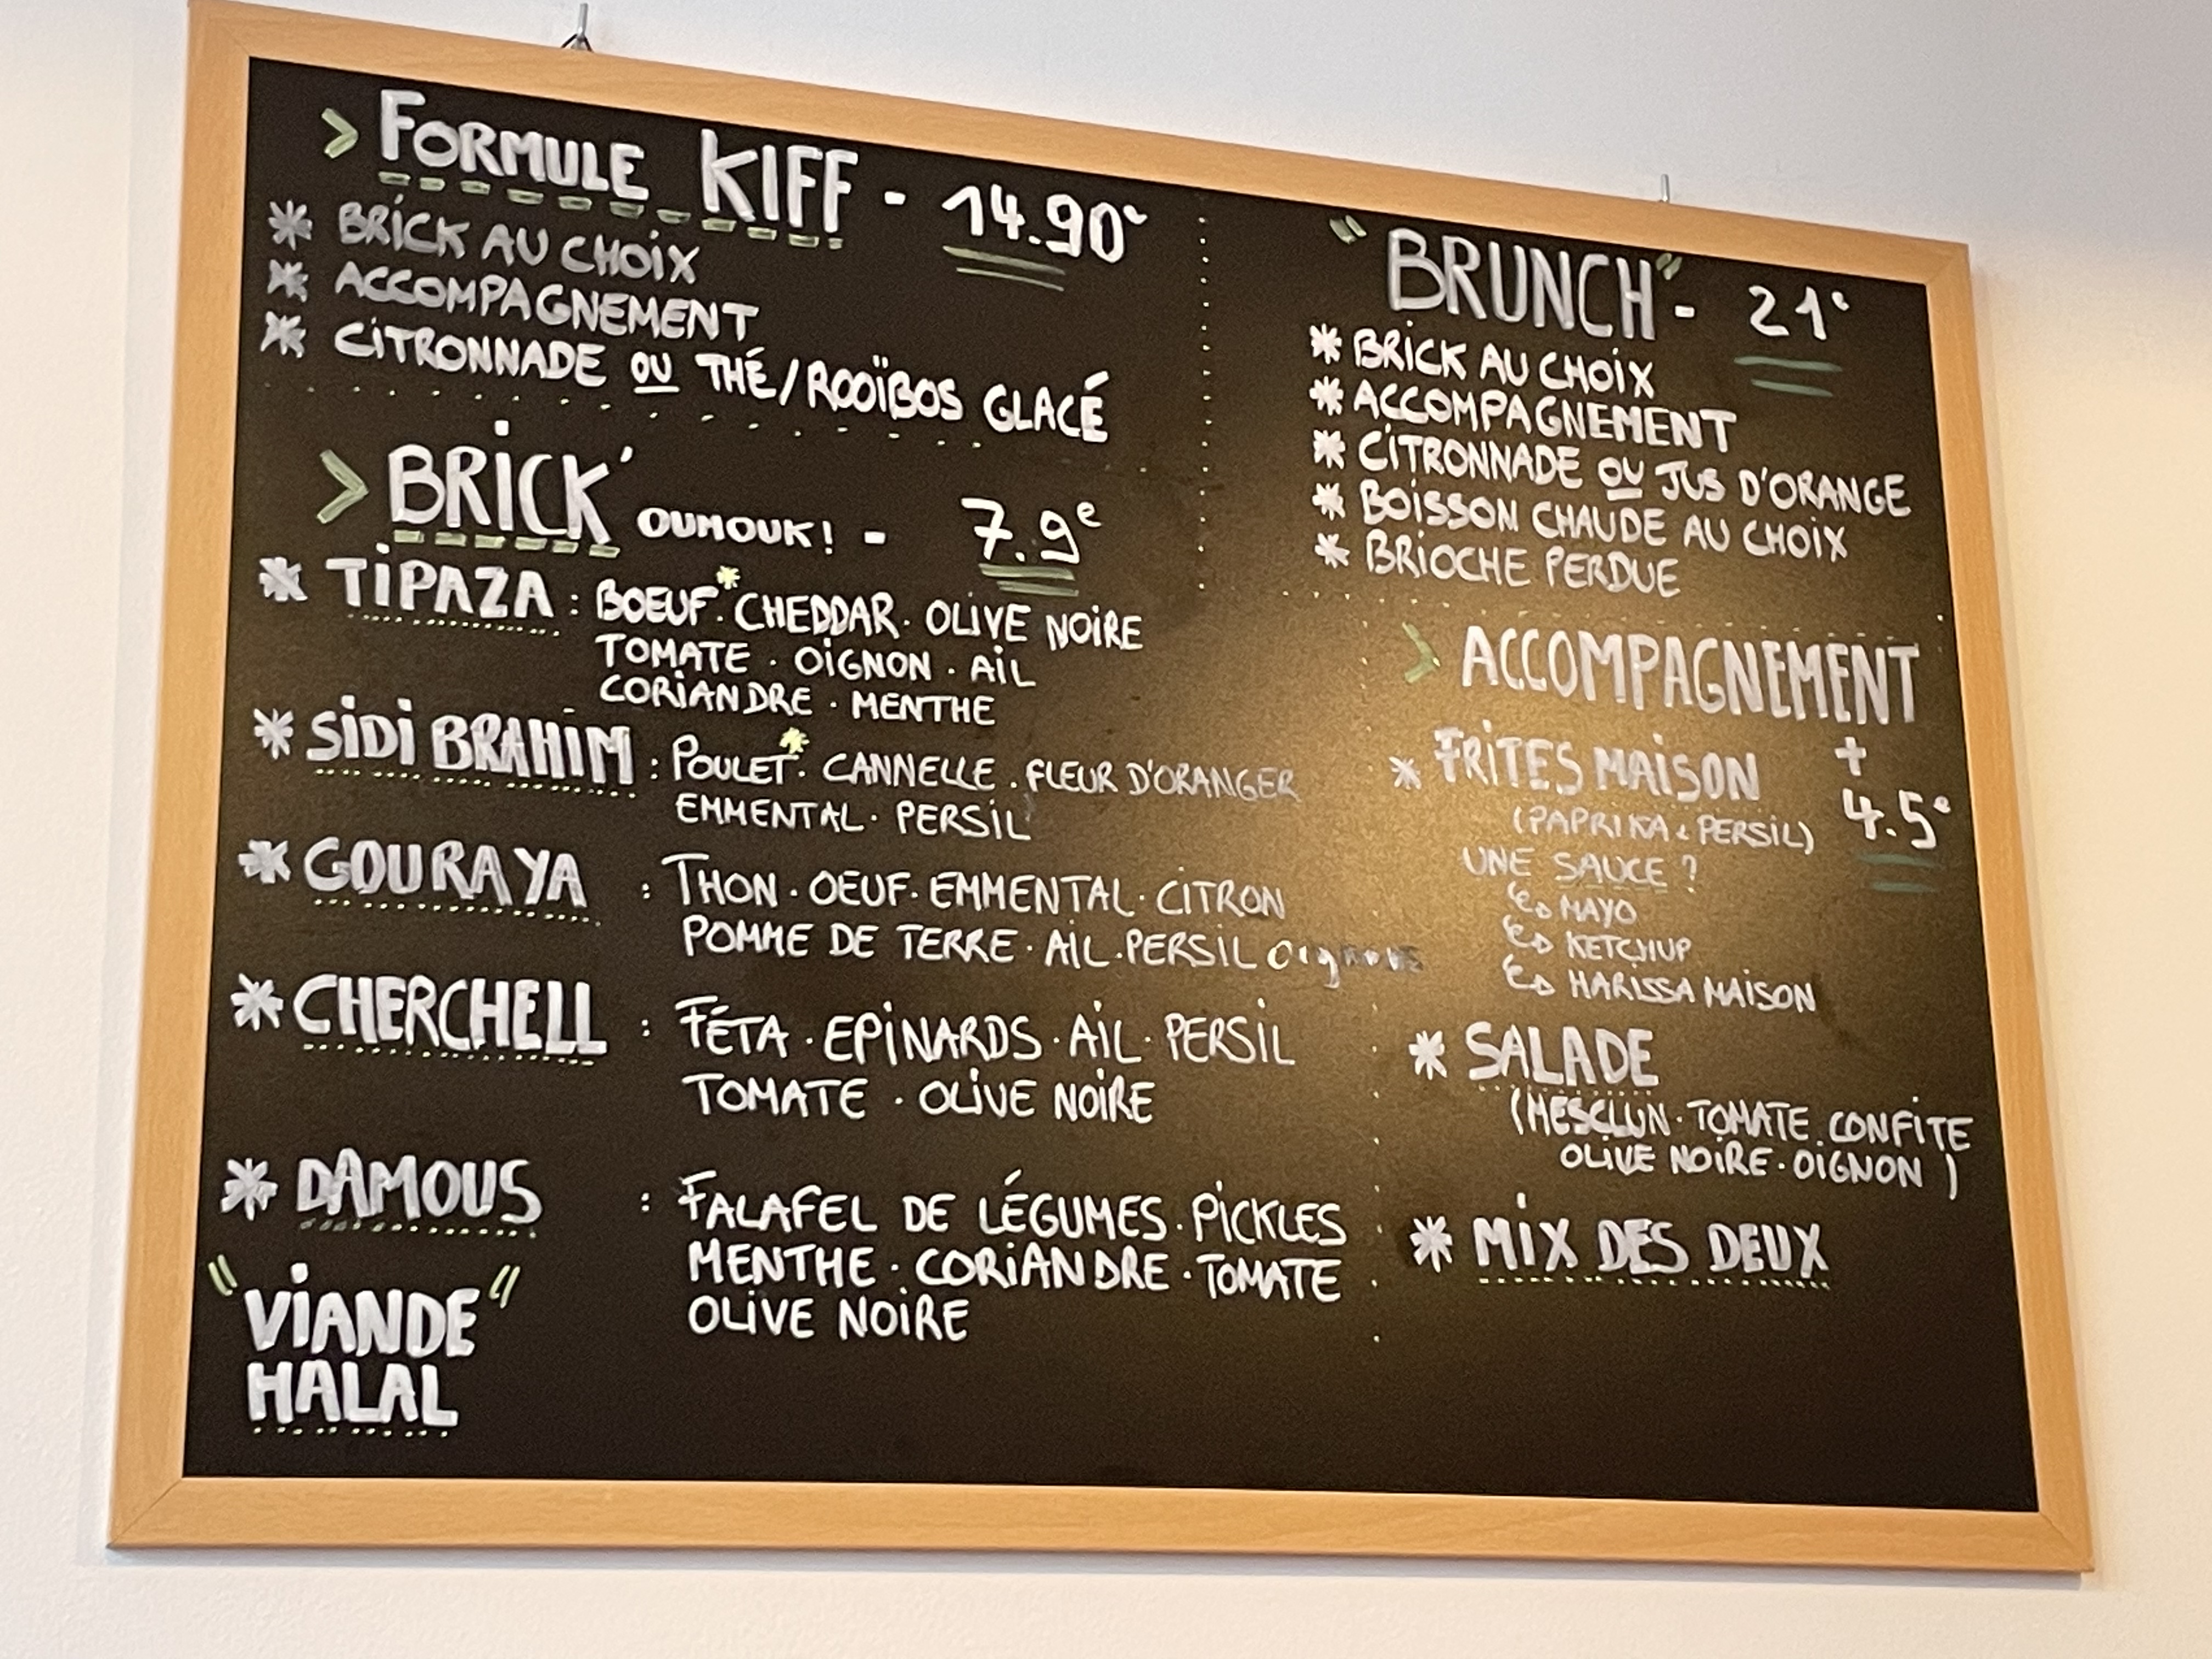 > FORMULE KIFF - 14.90€
* BRICK AU CHOIX
* ACCOMPAGNEMENT
* CITRONNADE OU THÉ/ROOÏBOS GLACÉ
> BRICK' OUMOUK! - 7.9€
* TIPAZA : BOEUF*. CHEDDAR. OLIVE NOIRE
TOMATE . OIGNON . AIL
CORIANDRE . MENTHE
* SIDI BRAHIM : POULET*. CANNELLE . FLEUR D'ORANGER
EMMENTAL. PERSIL
* GOURAYA : THON . OEUF. EMMENTAL. CITRON
POMME DE TERRE . AIL . PERSIL oignons
* CHERCHELL : FÉTA . EPINARDS . AIL. PERSIL
TOMATE . OLIVE NOIRE
* DAMOUS : FALAFEL DE LÉGUMES . PICKLES
MENTHE . CORIANDRE . TOMATE
OLIVE NOIRE
"VIANDE"
HALAL
"BRUNCH" - 21€
* BRICK AU CHOIX
* ACCOMPAGNEMENT
* CITRONNADE OU JUS D'ORANGE
* BOISSON CHAUDE AU CHOIX
* BRIOCHE PERDUE
> ACCOMPAGNEMENT
* FRITES MAISON + 4.5€
(PAPRIKA & PERSIL)
UNE SAUCE ?
MAYO
KETCHUP
HARISSA MAISON
* SALADE
(MESCLUN . TOMATE CONFITE
OLIVE NOIRE . OIGNON )
* MIX DES DEUX